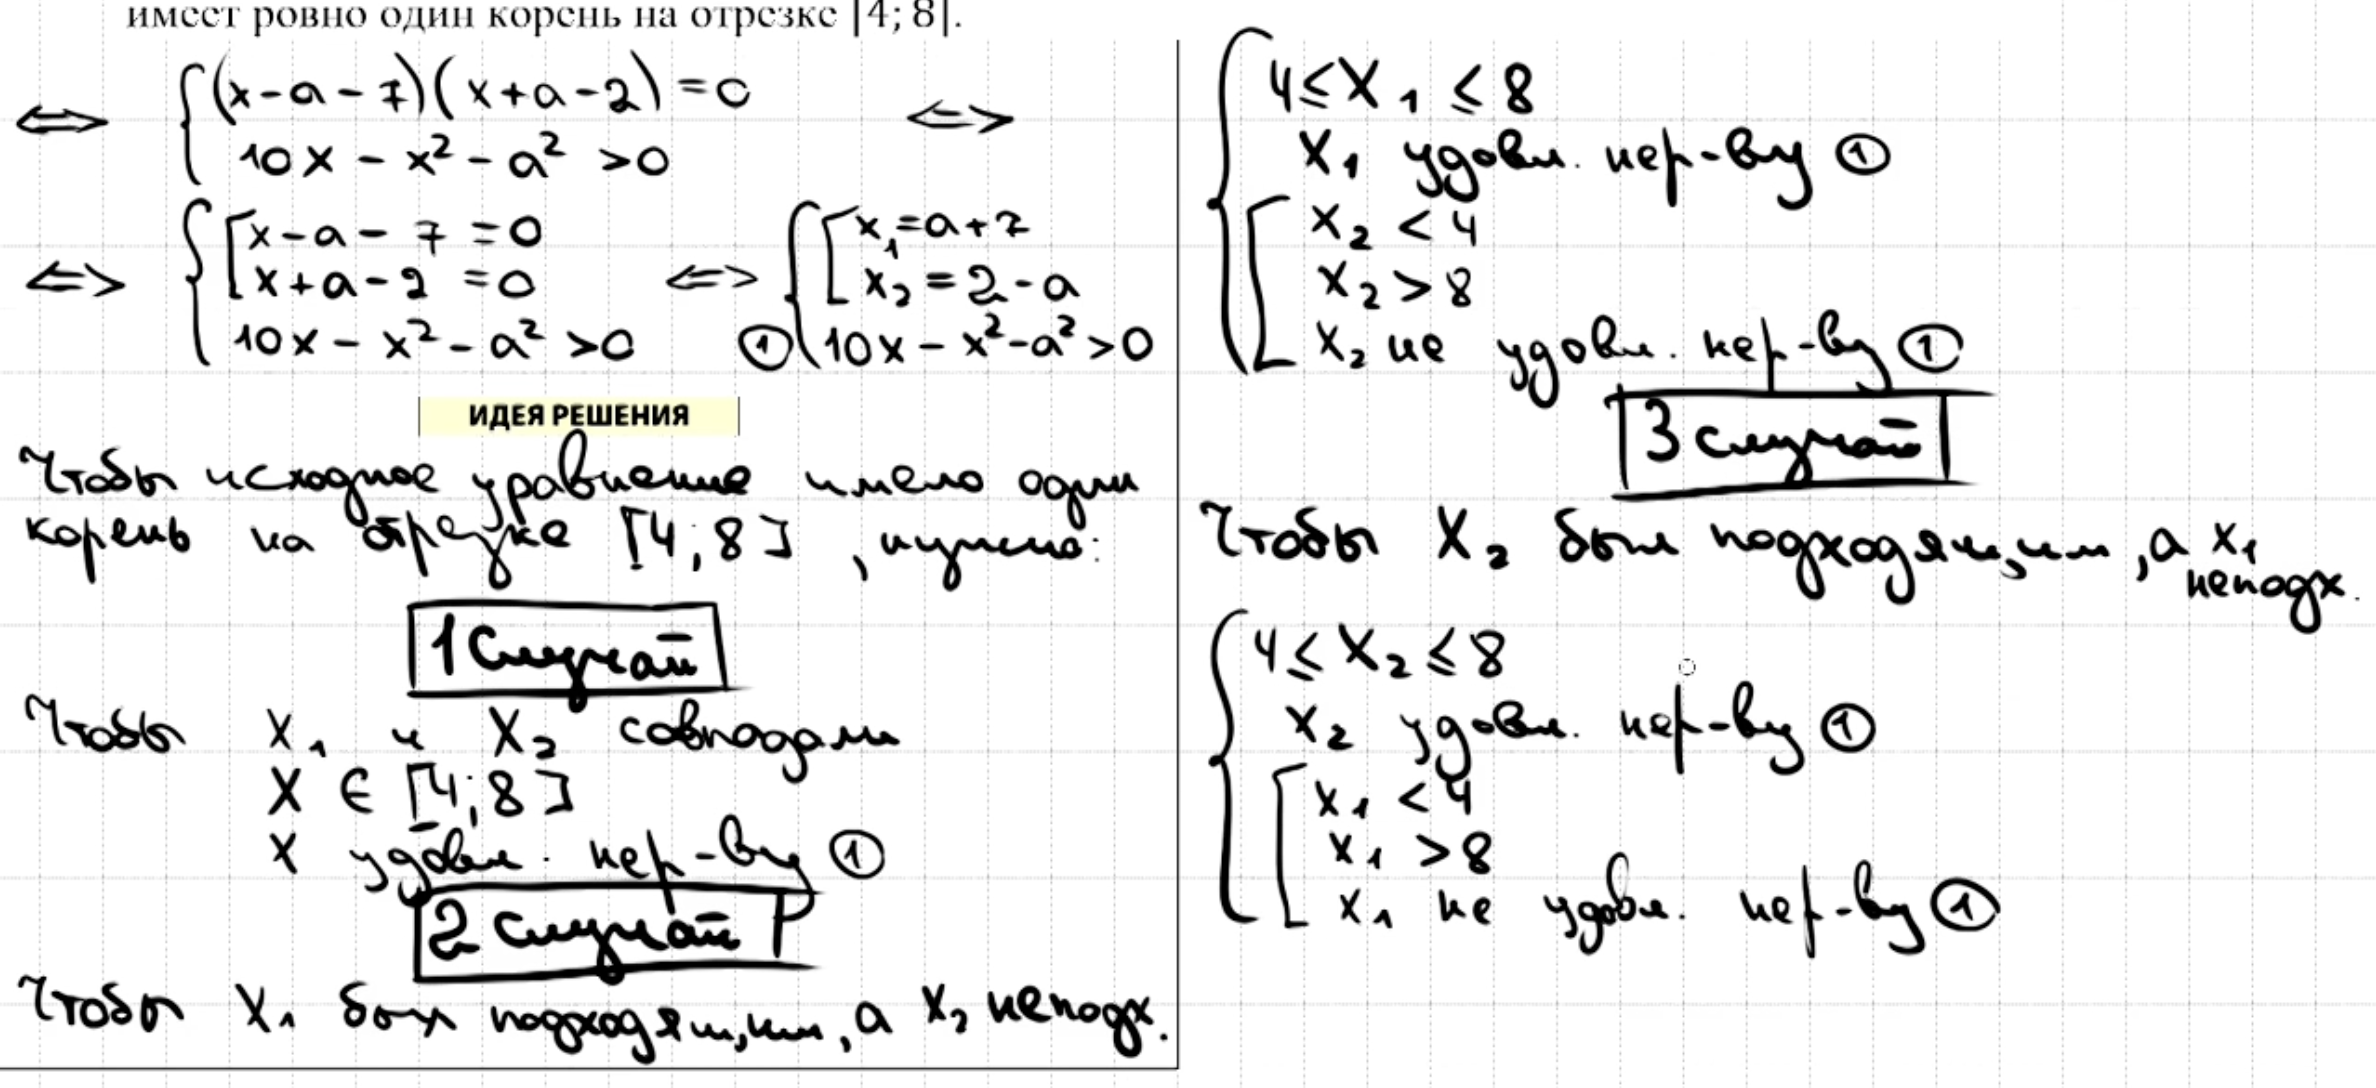 имеет ровно один корень на отрезке [4; 8].
⇔ { (x-a-7)(x+a-2)=0 ⇔
10x - x² - a² >0
⇔ { [ x-a-7=0 ⇔ { [ x₁=a+7
x+a-2=0 x₂=2-a
10x - x² - a² >0 ① 10x - x² - a² >0
ИДЕЯ РЕШЕНИЯ
Чтобы исходное уравнение имело один
корень на отрезке [4;8], нужно:
1 Случай
Чтобы x₁ и x₂ совпадали
x ∈ [4;8]
x удовл. нер-ву ①
2 случай
Чтобы x₁ был подходящим, а x₂ неподх.
{ 4≤x₁≤8
x₁ удовл. нер-ву ①
[ x₂ < 4
x₂ > 8
x₂ не удовл. нер-ву ①
3 случай
Чтобы x₂ был подходящим, а x₁
неподх.
{ 4≤x₂≤8
x₂ удовл. нер-ву ①
[ x₁ < 4
x₁ > 8
x₁ не удовл. нер-ву ①